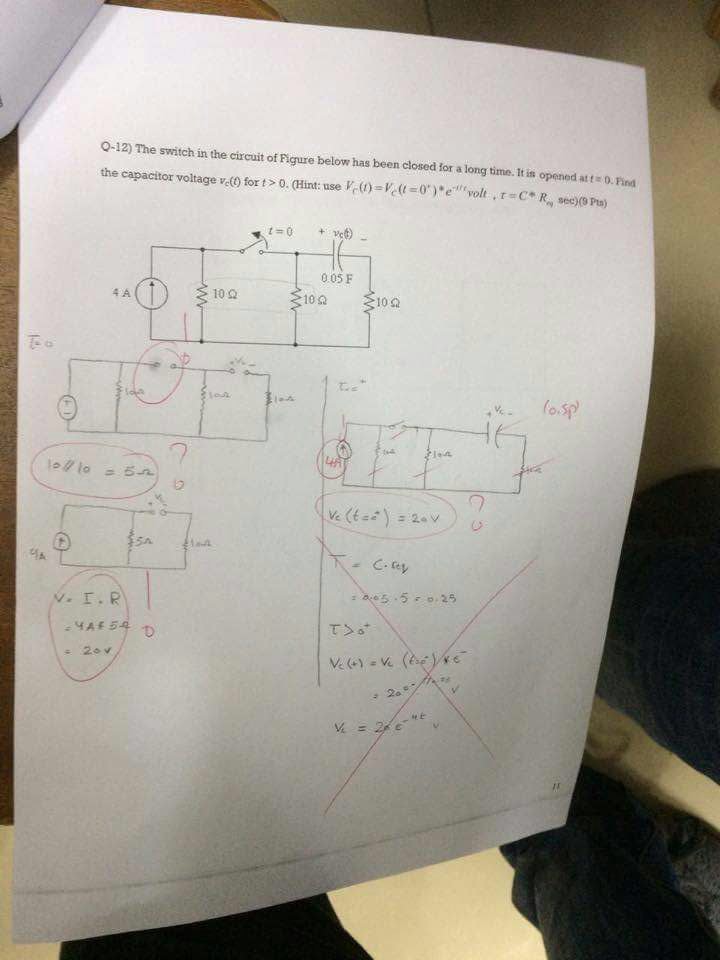 Q-12) The switch in the circuit of Figure below has been closed for a long time. It is opened at t = 0. Find
the capacitor voltage vc(t) for t > 0. (Hint: use Vc(t) = Vc(t = 0⁺)*e^-t/τ volt , τ = C* Req sec)(9 Pts)
t = 0
+ vc(t) –
0.05 F
4 A
10 Ω
10 Ω
10 Ω
t=0
+ Vc -
10Ω
10Ω
10Ω
10 // 10 = 5 Ω
+ Vc
5Ω
10Ω
4A
V = I . R
= 4A * 5Ω
= 20V
+ Vc -
(0.5P)
4A
10Ω
Vc (t=0⁺) = 20 V
τ = C. Req
= 0.05 . 5 = 0.25
T > 0⁺
Vc (t) = Vc (t=0⁺) * e⁻
V
Vc = 20 e^-4t V
11